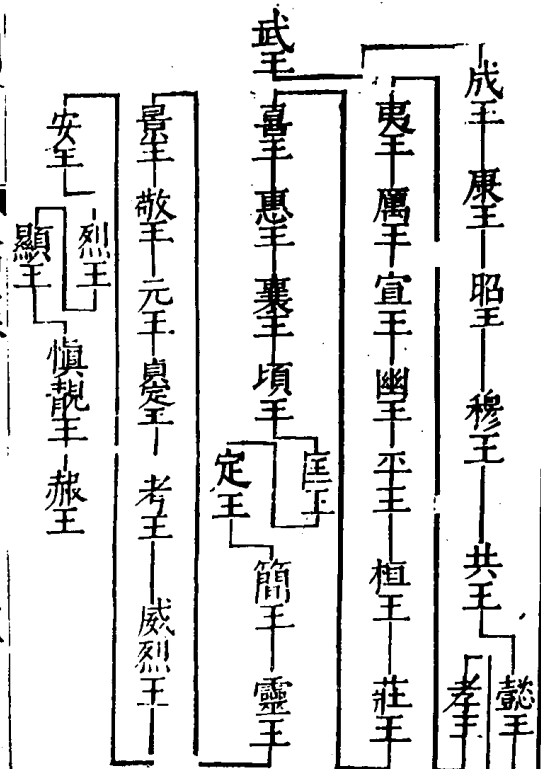 武王
成王 康王 昭王 穆王 共王 懿王
孝王
夷王 厲王 宣王 幽王 平王 桓王 莊王
喜王 惠王 襄王 頃王 匡王
定王 簡王 靈王
景王 敬王 元王 貞定王 考王 威烈王
安王 烈王
顯王 愼靚王 赧王